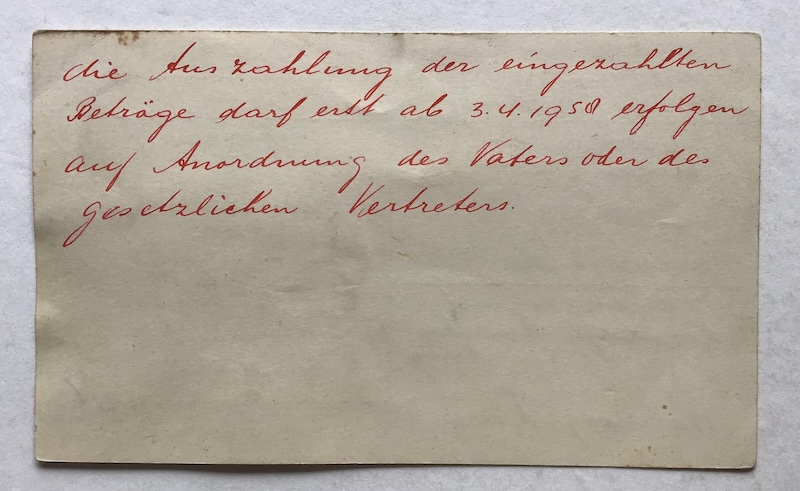 die Auszahlung der eingezahlten
Beträge darf erst ab 3.4.1958 erfolgen
auf Anordnung des Vaters oder des
gesetzlichen Vertreters.